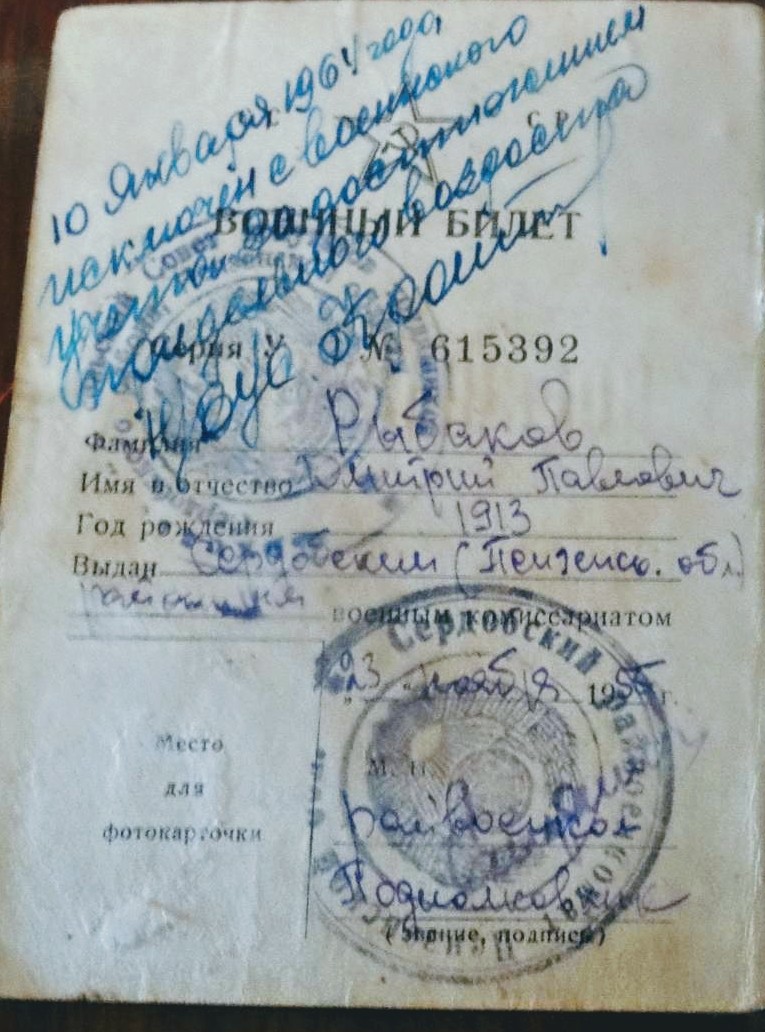 10 января 1964 года,
исключён с воинского
учёта за достижением
предельного возраста
С Р
ВОЕННЫЙ БИЛЕТ
Серия № 615392
Фамилия Рыбаков
Имя и отчество Дмитрий Павлович
Год рождения 1913
Выдан Сердобским (Пензенск. обл.)
районным военным комиссариатом
„23 “ ноября 1955 г.
Место
для
фотокарточки
М. П.
Райвоенком
Подполковник
(Звание, подпись)
Сердобский райвоенкомат